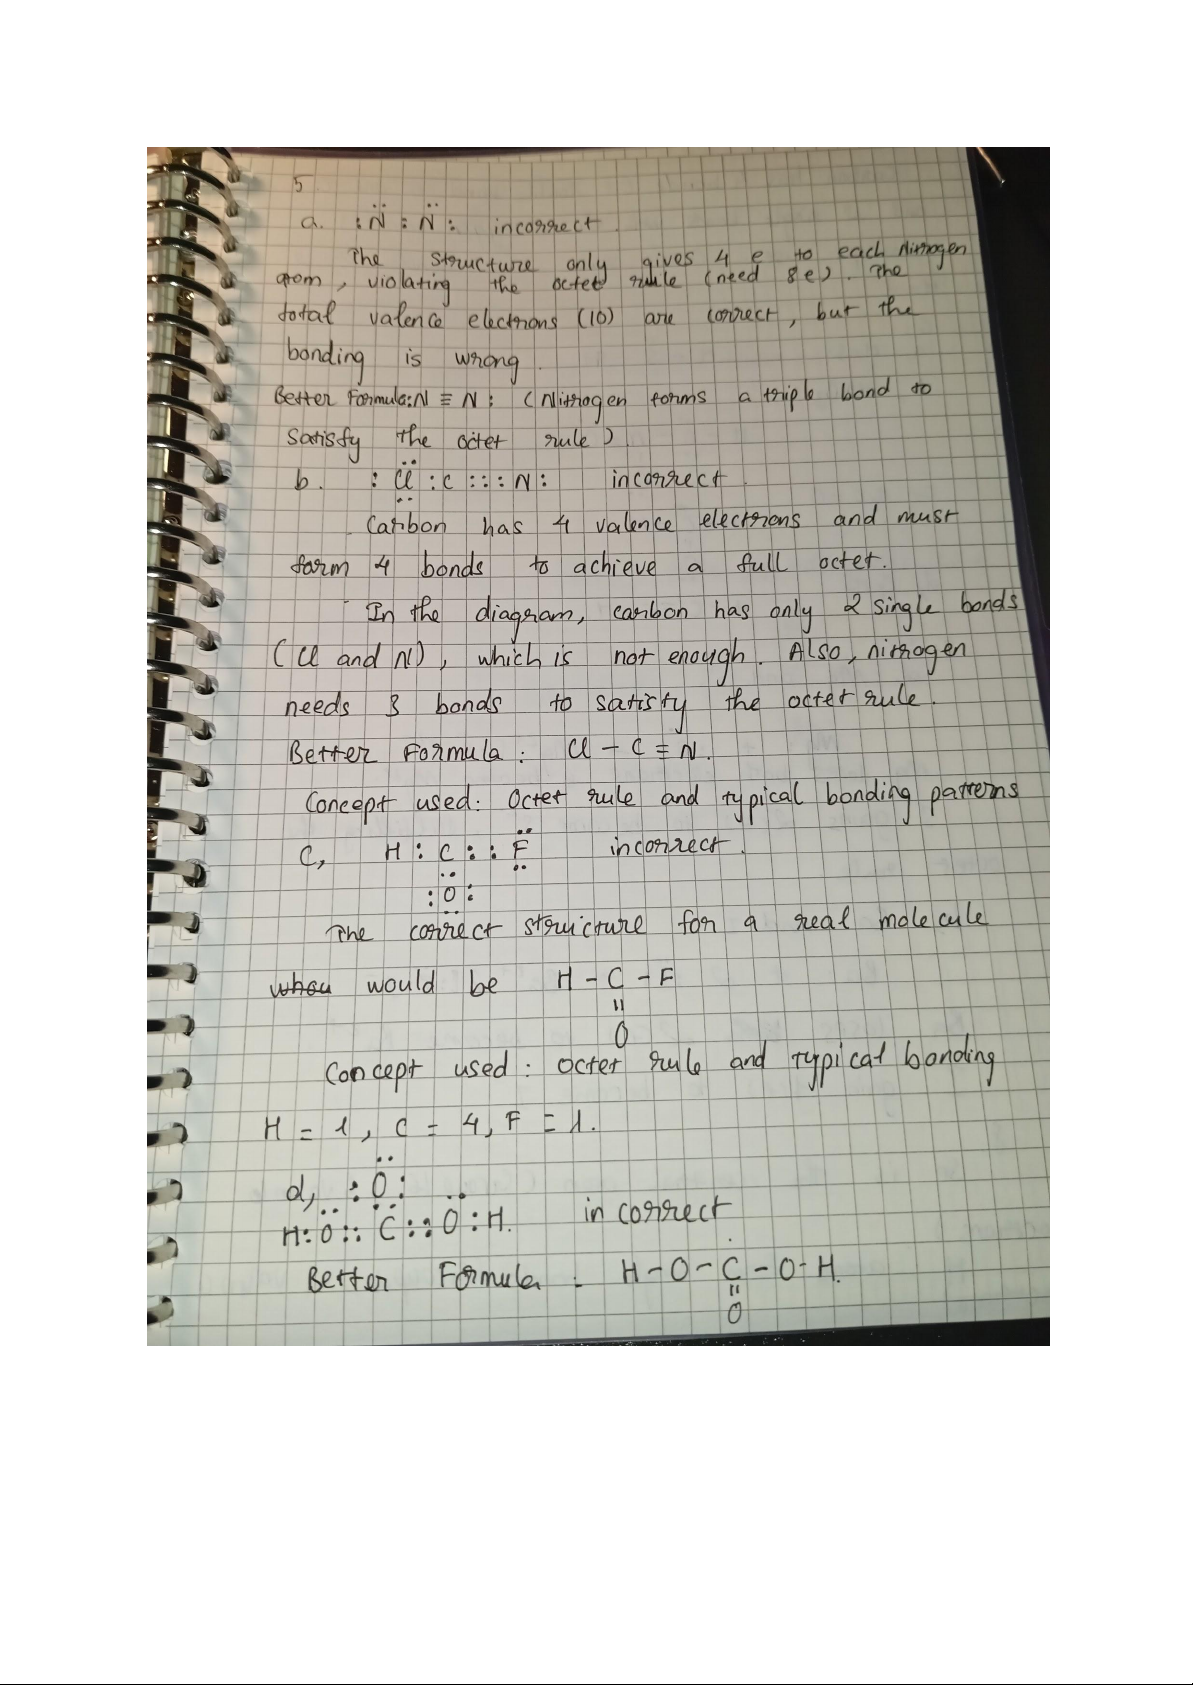 5
a. :N̈ : N̈ : incorrect
The structure only gives 4 e to each Nitrogen
atom, violating the octet rule (need 8e). The
total valence electrons (10) are correct, but the
bonding is wrong.
Better Formula: :N ≡ N: (Nitrogen forms a triple bond to
satisfy the octet rule)
b. :Cl : C ::: N: incorrect.
Carbon has 4 valence electrons and must
form 4 bonds to achieve a full octet.
- In the diagram, carbon has only 2 single bonds
(Cl and N), which is not enough. Also, nitrogen
needs 3 bonds to satisfy the octet rule.
Better Formula: Cl - C ≡ N.
Concept used: Octet rule and typical bonding patterns
C, H : C :: F incorrect.
:O:
The correct structure for a real molecule
would be H - C - F
=
O
Concept used: octet rule and typical bonding
H = 1, C = 4, F = 1.
d, :O:
H:O :: C :: O :H. incorrect
Better Formula - H-O-C-O-H.
=
O